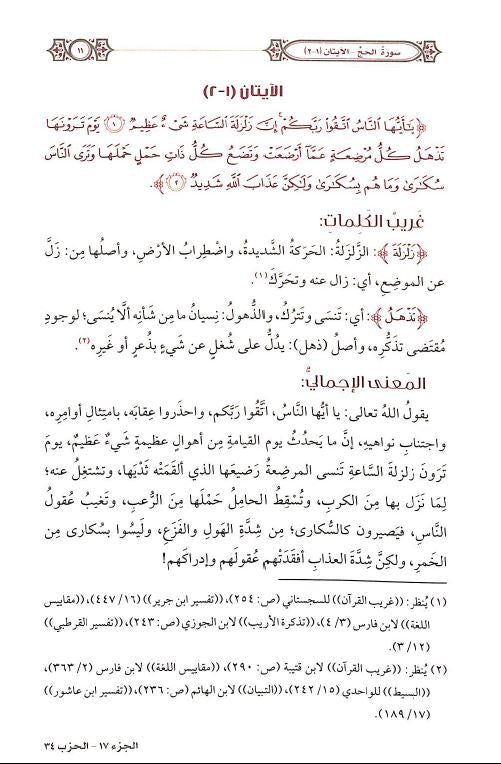 سورة الحج – الآيتان (١-٢)
١١
الآيتان (١-٢)
﴿ يَٰٓأَيُّهَا ٱلنَّاسُ ٱتَّقُوا۟ رَبَّكُمْ ۚ إِنَّ زَلْزَلَةَ ٱلسَّاعَةِ شَىْءٌ عَظِيمٌ ۝١ يَوْمَ تَرَوْنَهَا
تَذْهَلُ كُلُّ مُرْضِعَةٍ عَمَّآ أَرْضَعَتْ وَتَضَعُ كُلُّ ذَاتِ حَمْلٍ حَمْلَهَا وَتَرَى ٱلنَّاسَ
سُكَٰرَىٰ وَمَا هُم بِسُكَٰرَىٰ وَلَٰكِنَّ عَذَابَ ٱللَّهِ شَدِيدٌ ۝٢ ﴾.
غَريبُ الكَلِماتِ:
﴿ زَلْزَلَةَ ﴾: الزَّلزَلةُ: الحَركةُ الشَّديدةُ، واضْطِرابُ الأرْضِ، وأصلُها مِن: زَلَّ
عن الموضِعِ، أي: زال عنه وتحَرَّكَ(١).
﴿ تَذْهَلُ ﴾: أي: تَنسَى وتَترُكُ، والذُّهولُ: نِسيانُ ما مِن شَأنِه ألَّا يُنسَى؛ لوجودِ
مُقتَضى تذَكُّرِه، وأصلُ (ذهل): يدُلُّ على شُغلٍ عن شَيءٍ بذُعرٍ أو غَيرِه(٢).
المَعنى الإجماليُّ:
يقولُ اللهُ تعالى: يا أيُّها النَّاسُ، اتَّقُوا رَبَّكم، واحذَروا عِقابَه، بامتِثالِ أوامِرِه،
واجتنابِ نواهيهِ، إنَّ ما يَحدُثُ يومَ القيامةِ مِن أهوالٍ عظيمةٍ شَيءٌ عَظيمٌ، يومَ
تَرَونَ زلزلةَ السَّاعةِ تَنسى المرضِعةُ رَضيعَها الذي ألقَمَتْه ثَدْيَها، وتشتغِلُ عنه؛
لِمَا نَزَل بها مِنَ الكربِ، وتُسْقِطُ الحامِلُ حَمْلَها مِنَ الرُّعبِ، وتَغيبُ عُقولُ
النَّاسِ، فيَصيرون كالسُّكارى؛ مِن شِدَّةِ الهَولِ والفَزَعِ، ولَيسُوا بسُكارى مِن
الخَمرِ، ولكِنَّ شِدَّةَ العذابِ أفقَدَتْهم عُقولَهم وإدراكَهم!
(١) يُنظر: ((غريب القرآن)) للسجستاني (ص: ٢٥٤)، ((تفسير ابن جرير)) (١٦/ ٤٤٧)، ((مقاييس
اللغة)) لابن فارس (٣/ ٤)، ((تذكرة الأريب)) لابن الجوزي (ص: ٢٤٣)، ((تفسير القرطبي))
(١٢/ ٣).
(٢) يُنظر: ((غريب القرآن)) لابن قتيبة (ص: ٢٩٠)، ((مقاييس اللغة)) لابن فارس (٢/ ٣٦٣)،
((البسيط)) للواحدي (١٥/ ٢٤٢)، ((التبيان)) لابن الهائم (ص: ٢٣٦)، ((تفسير ابن عاشور))
(١٧/ ١٨٩).
الجزء ١٧ – الحزب ٣٤